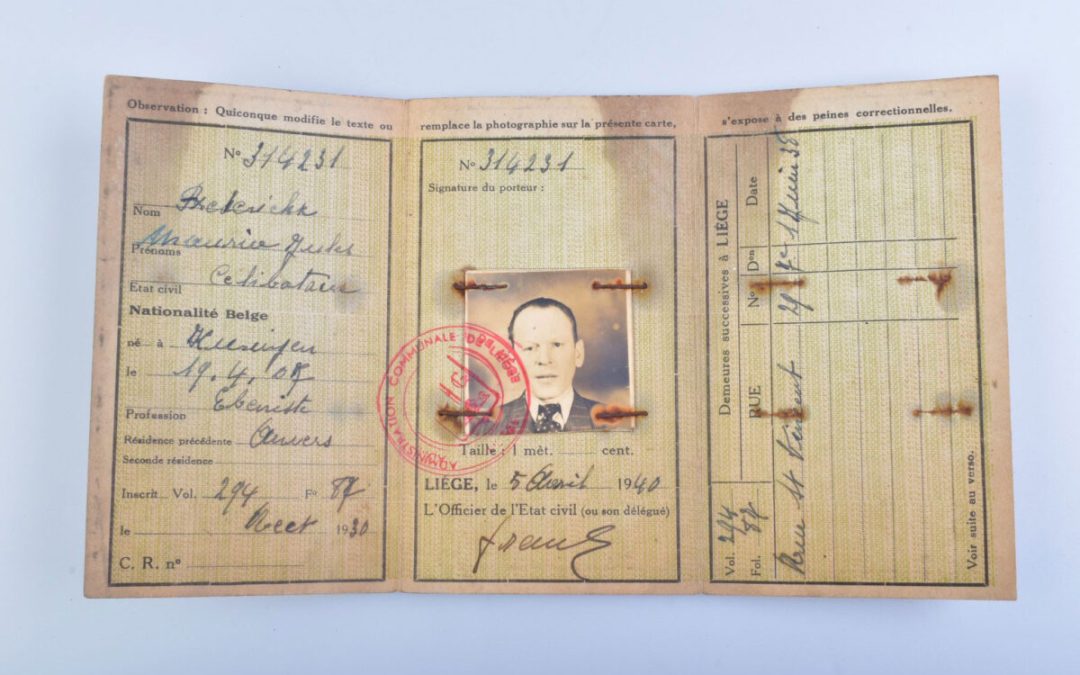 Observation : Quiconque modifie le texte ou remplace la photographie sur la présente carte, s'expose à des peines correctionnelles.
N° 314231
Nom
Prénoms Maurice Jules
Etat civil Celibataire
Nationalité Belge
né à
le 19.4.08
Profession Ebeniste
Résidence précédente Anvers
Seconde résidence
Inscrit Vol. 294 F° 87
le 1930
C. R. n°
N° 314231
Signature du porteur :
ADMINISTRATION COMMUNALE DE LIÉGE
Taille : 1 mèt. cent.
LIÉGE, le 5 Avril 1940
L'Officier de l'Etat civil (ou son délégué)
Demeures successives à LIÉGE
Vol. 294
Fol. 87
RUE
N°
Don
Date
Rue St Vincent
Voir suite au verso.